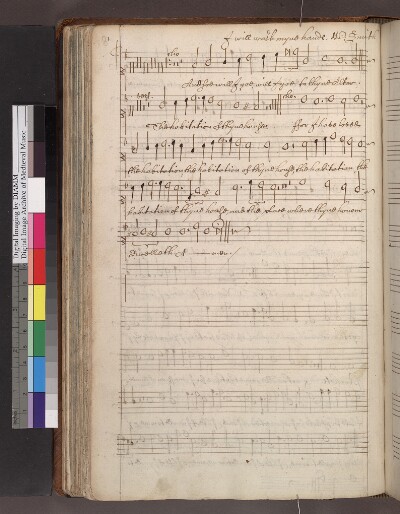 I will wash myne hands. Mr Smith
cho
And soe will I goe, will I goe to thyne Altar.
vers. cho.
The habitation of thyne house For I have loved
the habitation the habitation of thyne house, the habitation the
habitation of thyne house and the place where thyne honour
dwelleth A men.
Digital Imaging by DIAMM
Digital Image Archive of Medieval Music